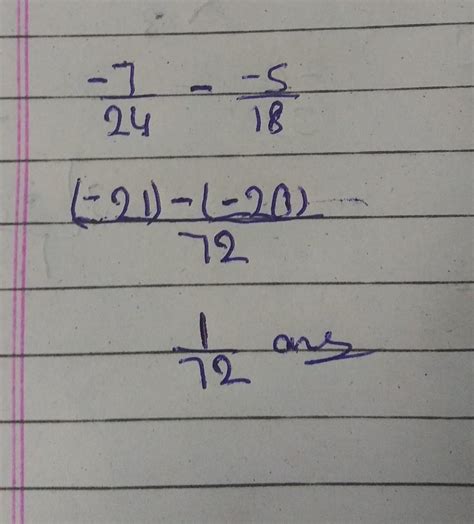 -7/24 - -5/18
(-21)-(-20)/72
1/72 ans